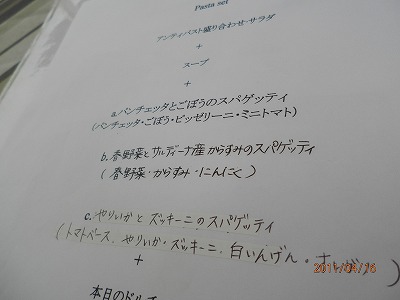 Pasta set
アンティパスト盛り合わせ-サラダ
+
スープ
+
a.パンチェッタとごぼうのスパゲッティ
(パンチェッタ・ごぼう・ピッゼリーニ・ミニトマト)
b.春野菜とサルディーナ産からすみのスパゲッティ
(春野菜・からすみ・にんにく)
c.やりいかとズッキーニのスパゲッティ
(トマトベース、やりいか・ズッキーニ、白いんげん・
+
本日のドルチェ